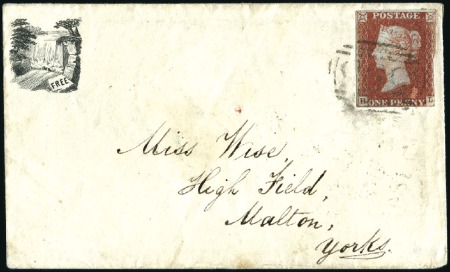 FREE
POSTAGE
ONE PENNY
Miss Wise,
High Field,
Malton,
Yorks.